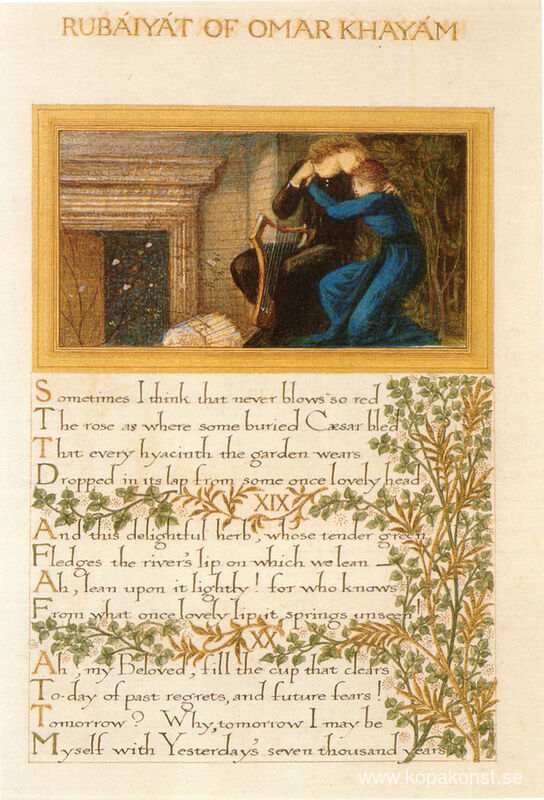 RUBÁIYÁT OF OMAR KHAYÁM
Sometimes I think that never blows so red
The rose as where some buried Cæsar bled
That every hyacinth the garden wears
Dropped in its lap from some once lovely head
XIX
And this delightful herb, whose tender green
Fledges the river's lip on which we lean —
Ah, lean upon it lightly! for who knows
From what once lovely lip it springs unseen!
XX
Ah, my Beloved, fill the cup that clears
To-day of past regrets, and future fears!
Tomorrow? Why, tomorrow I may be
Myself with Yesterday's seven thousand years
www.kopakonst.se